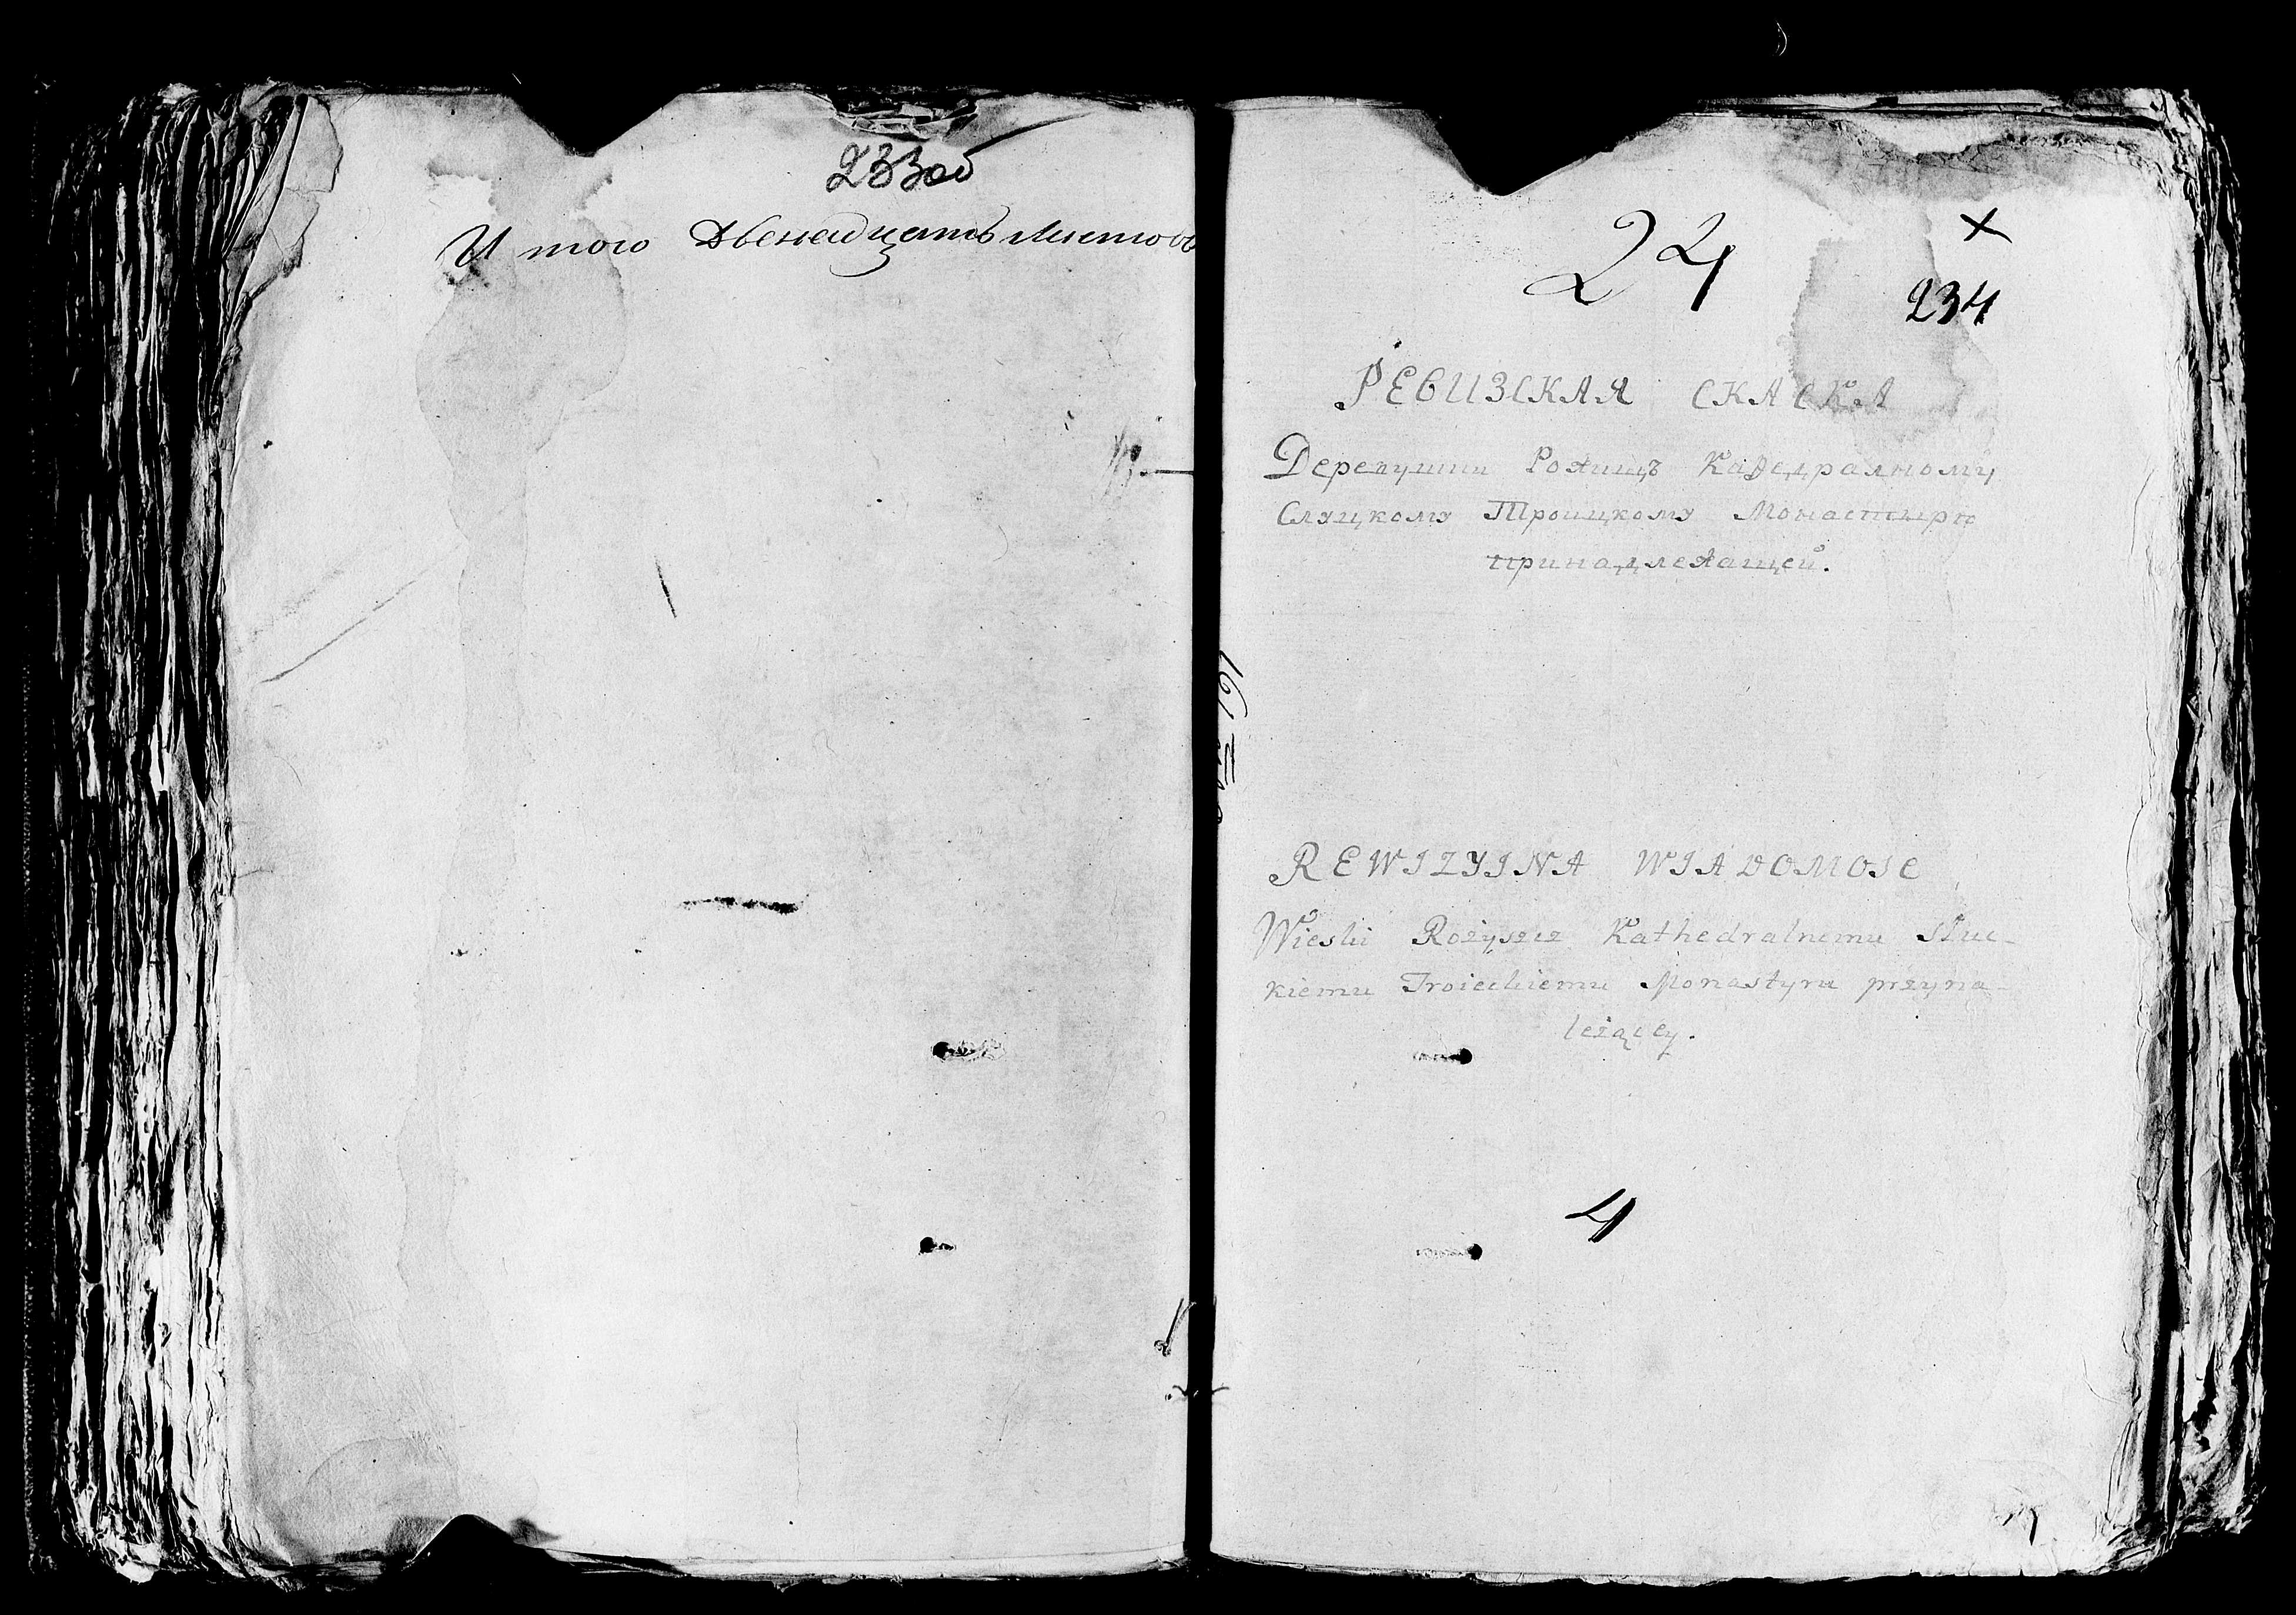 233об
И того Двенадцать листовъ
24
×
234
РЕВИЗСКАЯ СКАСКА
Деревушки Рожищъ Кафедралному
Слуцкому Троицкому Монастырю
принадлежащей.
REWIZYINA WIADOMOSC
Wioski Rożyszcz Kathedralnemu Słuc-
kiemu Troieckiemu Monastyru przyna-
leżącey.
4